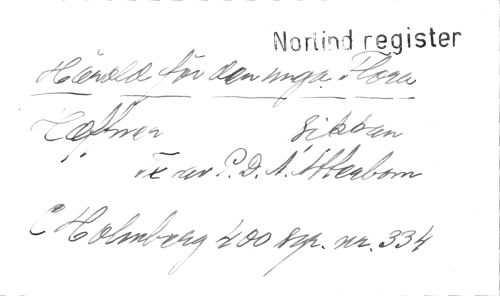 Norlind register
Härold för den unga Flora
Hæffner Sikkan
Tx av P.D.A. Atterbom
C Holmberg 400 sgr. nr. 334